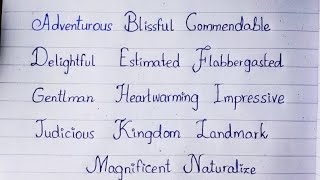 Adventurous Blissful Commendable
Delightful Estimated Flabbergasted
Gentlman Heartwarming Impressive
Judicious Kingdom Landmark
Magnificent Naturalize